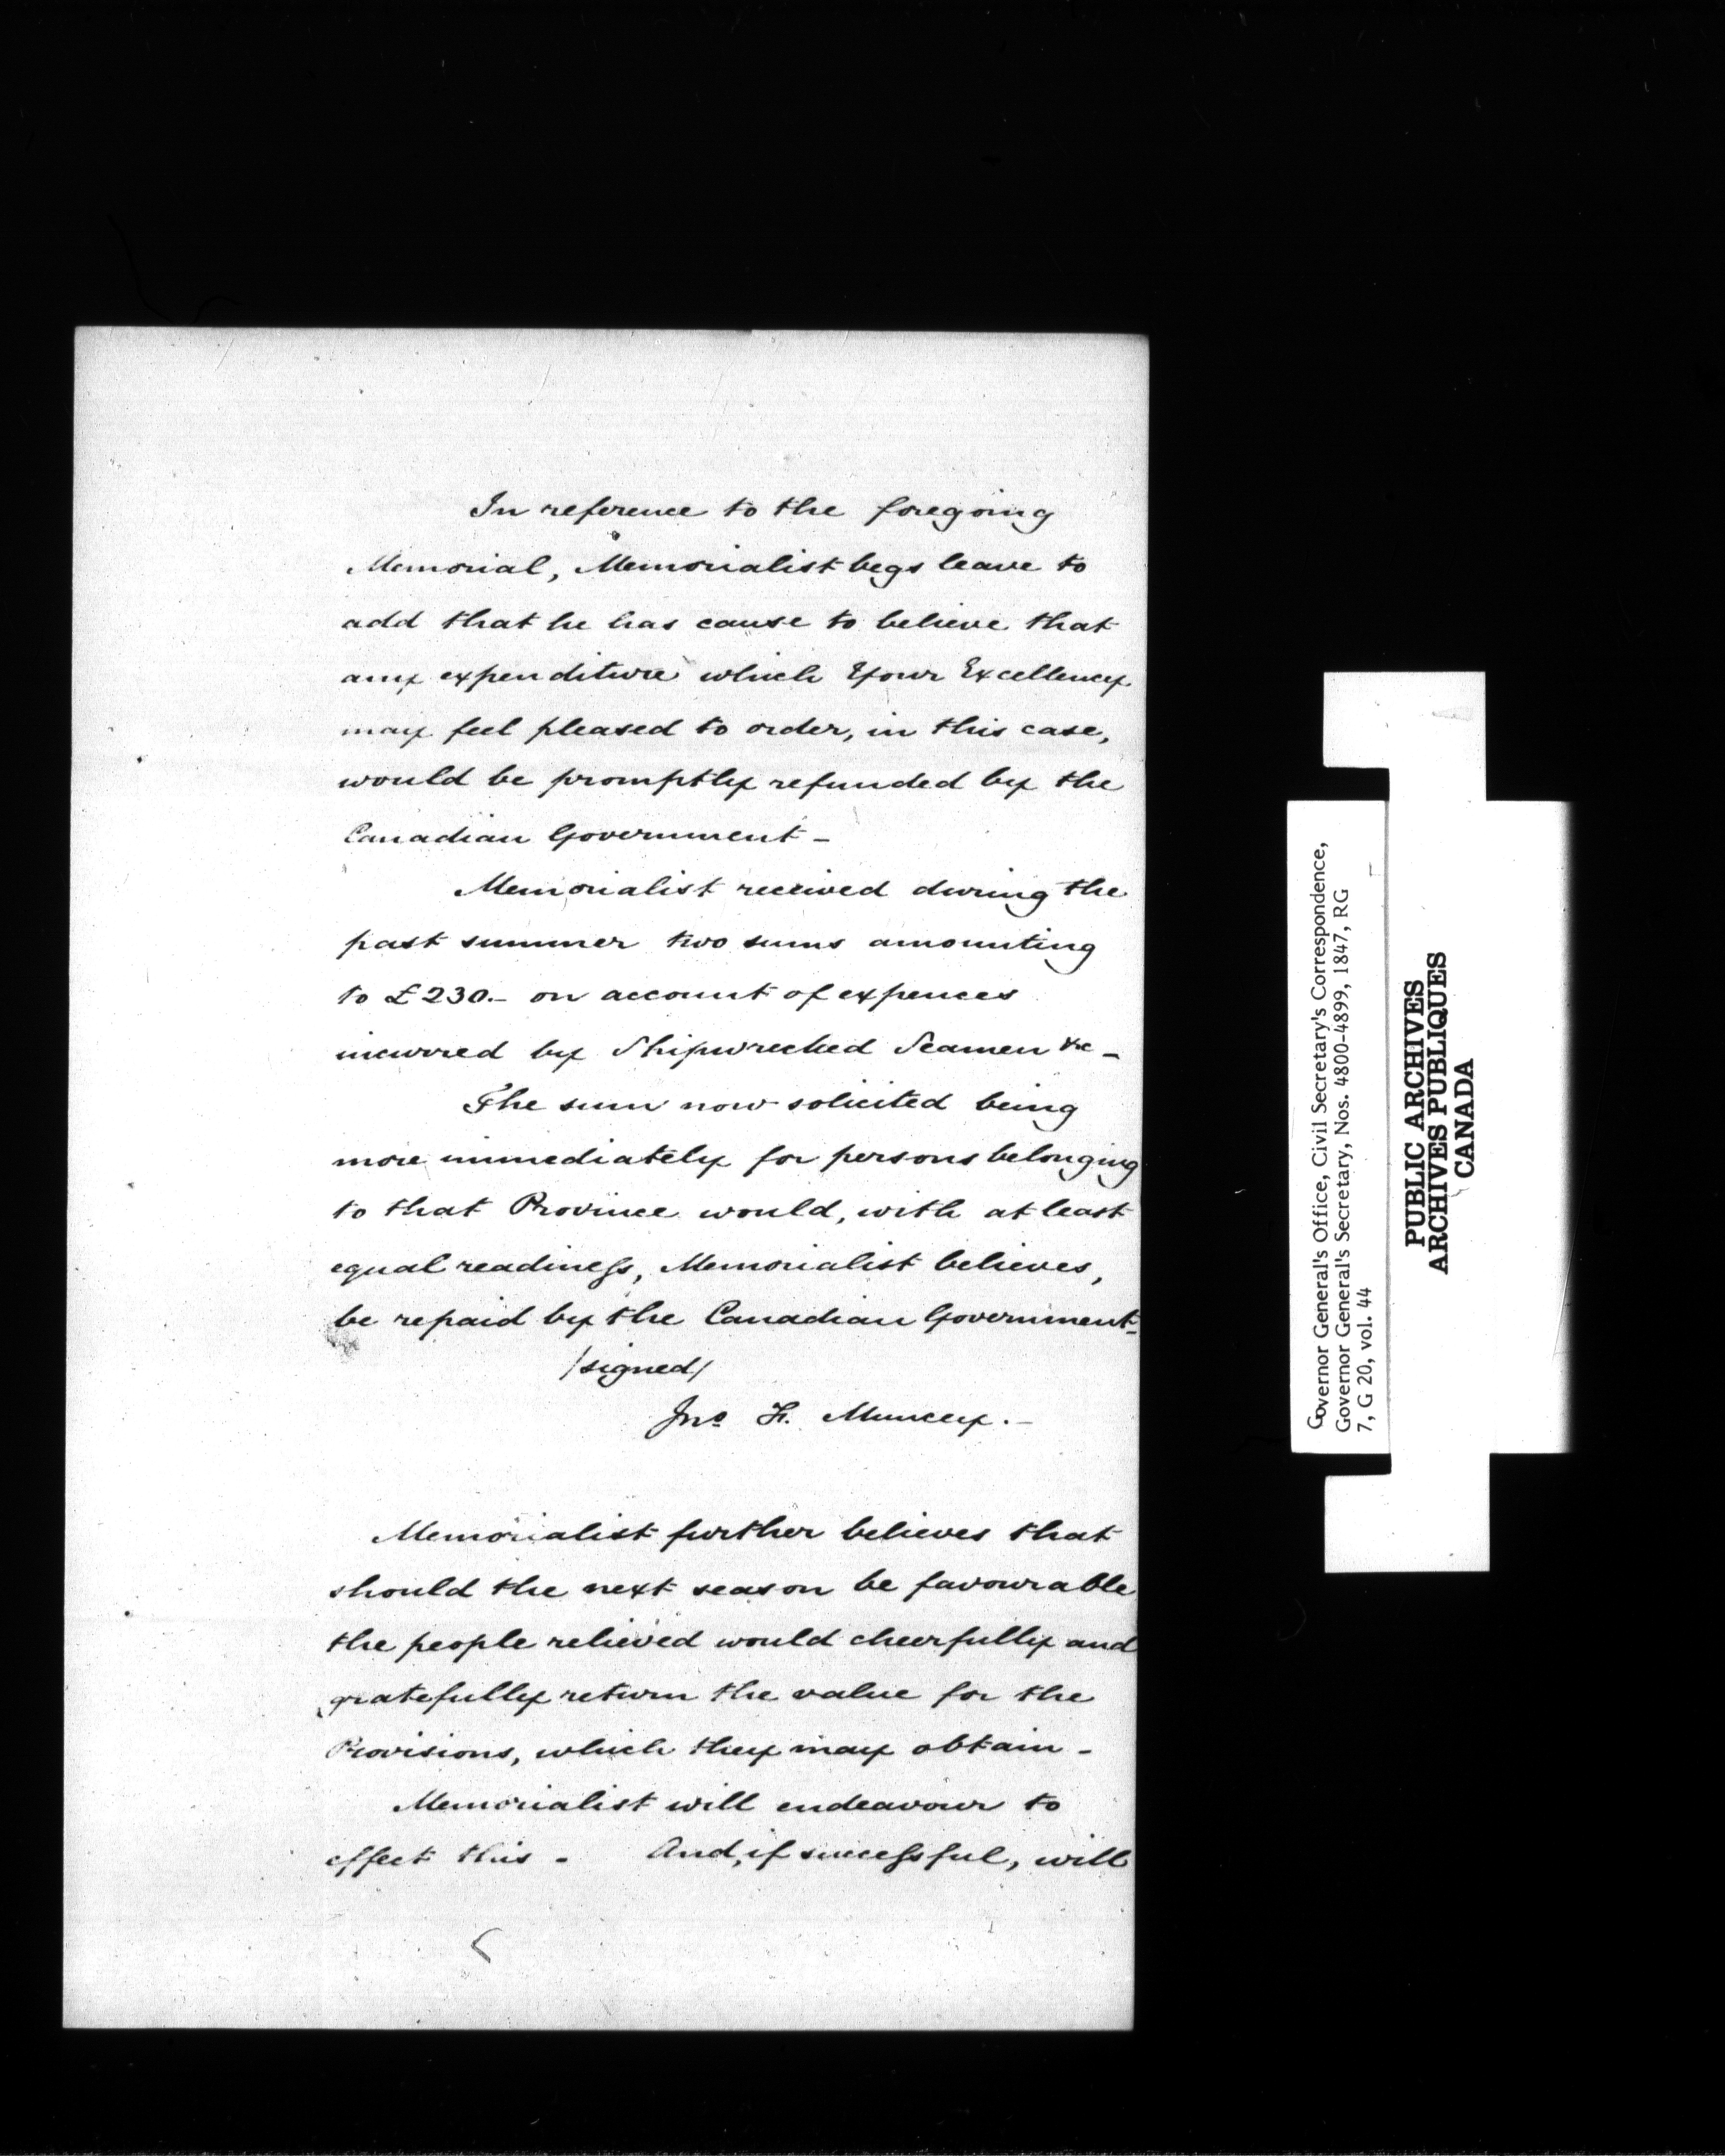 In reference to the foregoing
Memorial, Memorialist begs leave to
add that he has cause to believe that
any expenditure which Your Excellency
may feel pleased to order, in this case,
would be promptly refunded by the
Canadian Government –
Memorialist received during the
past summer two sums amounting
to £230.– on account of expences
incurred by Shipwrecked Seamen &c –
The sum now solicited being
more immediately for persons belonging
to that Province would, with at least
equal readiness, Memorialist believes,
be repaid by the Canadian Government –
/signed/
Jno H. Muncey. –
Memorialist further believes that
should the next season be favourable
the people relieved would cheerfully and
gratefully return the value for the
Provisions, which they may obtain –
Memorialist will endeavour to
effect this – And, if successful, will
Governor General's Office, Civil Secretary's Correspondence,
Governor General's Secretary, Nos. 4800-4899, 1847, RG
7, G 20, vol. 44
PUBLIC ARCHIVES
ARCHIVES PUBLIQUES
CANADA